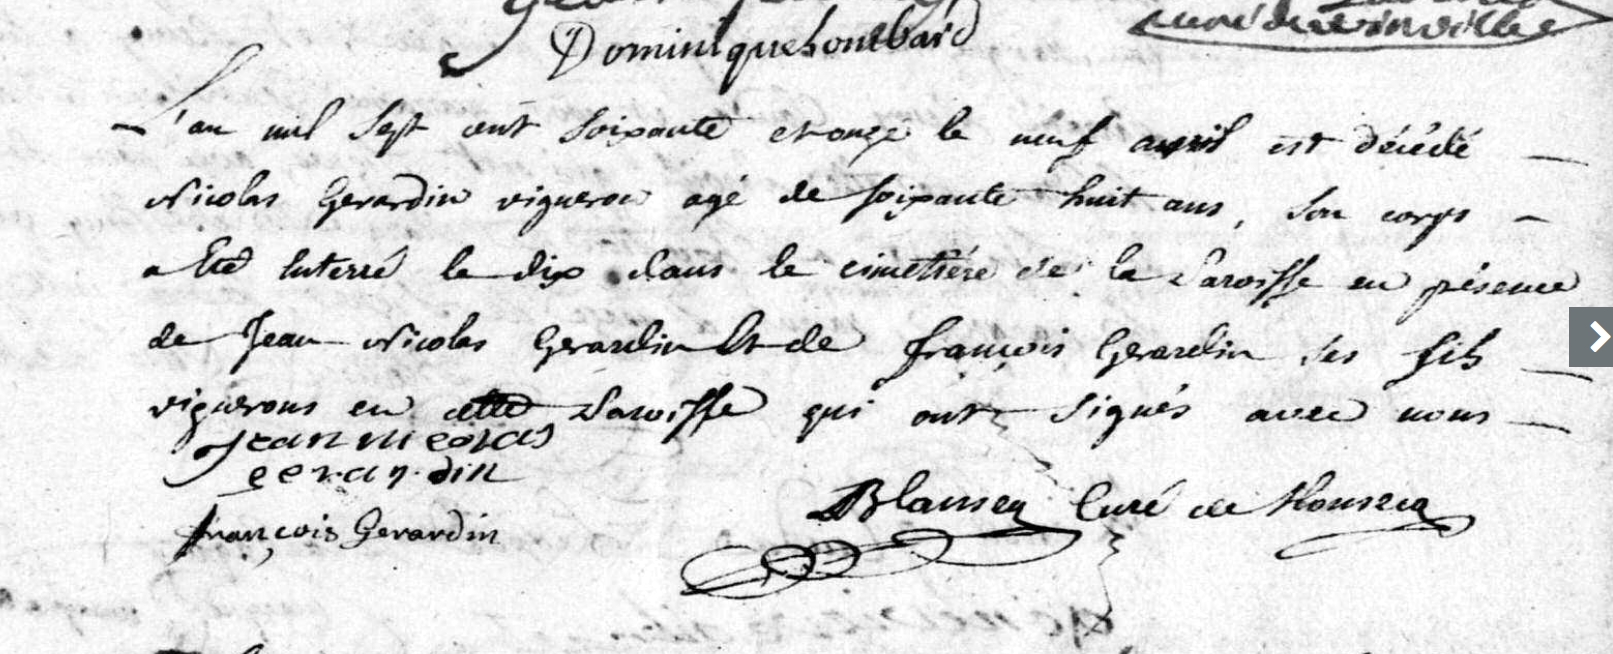 Dominique houlbard
L'an mil Sept cent Soixante et onze le neuf avril est décédé
Nicolas Gerardin vigneron agé de soixante huit ans, Son corps
a Eté Interré le dix dans le cimetiére de la Paroisse en présence
de Jean Nicolas Gerardin Et de françois Gerardin ses fils
vignerons en cette Paroisse qui ont signés avec nous
Jean nicolas
gerardin
françois Gerardin
Curé de